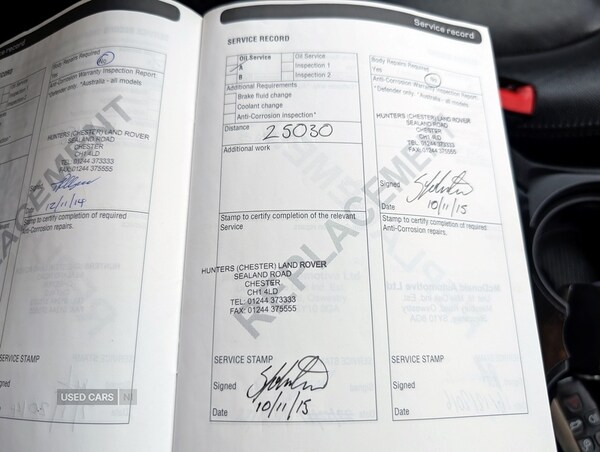 Service record
Service record
RECORD
Body Repairs Required
Yes No
Anti-Corrosion Warranty Inspection Report
*Defender only. *Australia - all models
HUNTERS (CHESTER) LAND ROVER
SEALAND ROAD
CHESTER
CH1 4LD
TEL: 01244 373333
FAX: 01244 375555
12/11/14
Stamp to certify completion of required
Anti-Corrosion repairs.
SERVICE STAMP
Signed
Date
SERVICE RECORD
Oil Service
A
B
Oil Service
Inspection 1
Inspection 2
Additional Requirements
Brake fluid change
Coolant change
Anti-Corrosion inspection*
Distance 25030
Additional work
Stamp to certify completion of the relevant
Service
HUNTERS (CHESTER) LAND ROVER
SEALAND ROAD
CHESTER
CH1 4LD
TEL: 01244 373333
FAX: 01244 375555
SERVICE STAMP
Signed
Date 10/11/15
Body Repairs Required
Yes No
Anti-Corrosion Warranty Inspection Report
* Defender only. * Australia - all models
HUNTERS (CHESTER) LAND ROVER
SEALAND ROAD
CHESTER
CH1 4LD
TEL: 01244 373333
FAX: 01244 375555
Signed
Date 10/11/15
Stamp to certify completion of required
Anti-Corrosion repairs.
SERVICE STAMP
Signed
Date
REPLACEMENT
REPLACEMENT
USED CARS NI